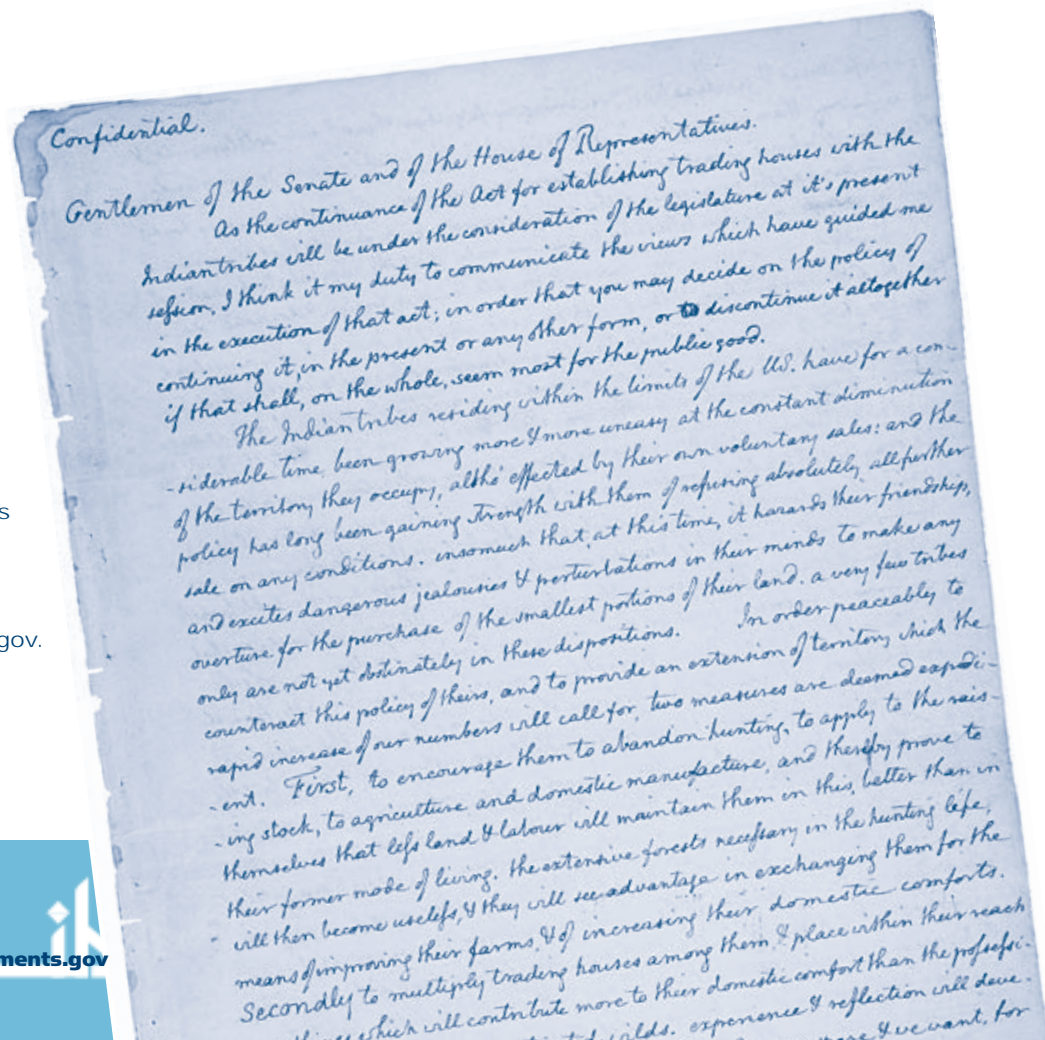 Confidential.
Gentlemen of the Senate and of the House of Representatives.
As the continuance of the Act for establishing trading houses with the
Indian tribes will be under the consideration of the legislature at it's present
session, I think it my duty to communicate the views which have guided me
in the execution of that act; in order that you may decide on the policy of
continuing it, in the present or any other form, or to discontinue it altogether
if that shall, on the whole, seem most for the public good.
The Indian tribes residing within the limits of the U.S. have for a con-
-siderable time, been growing more & more uneasy at the constant diminution
of the territory they occupy, altho' effected by their own voluntary sales: and the
policy has long been gaining strength with them of refusing absolutely all further
sale on any conditions. insomuch that, at this time, it hazards their friendship,
and excites dangerous jealousies & perturbations in their minds to make any
overture for the purchase of the smallest portions of their land. a very few tribes
only are not yet obstinately in these dispositions. In order peaceably to
counteract this policy of theirs, and to provide an extension of territory which the
rapid increase of our numbers will call for, two measures are deemed expedi-
-ent. First, to encourage them to abandon hunting, to apply to the rais-
-ing stock, to agriculture and domestic manufacture, and thereby prove to
themselves that less land & labour will maintain them in this, better than in
their former mode of living. the extensive forests necessary in the hunting life,
will then become useless, & they will see advantage in exchanging them for the
means of improving their farms, & of increasing their domestic comforts.
Secondly to multiply trading houses among them, & place within their reach
things which will contribute more to their domestic comfort than the possessi-
wilds. experience & reflection will deve-
& we want, for
s
gov.
ments.gov